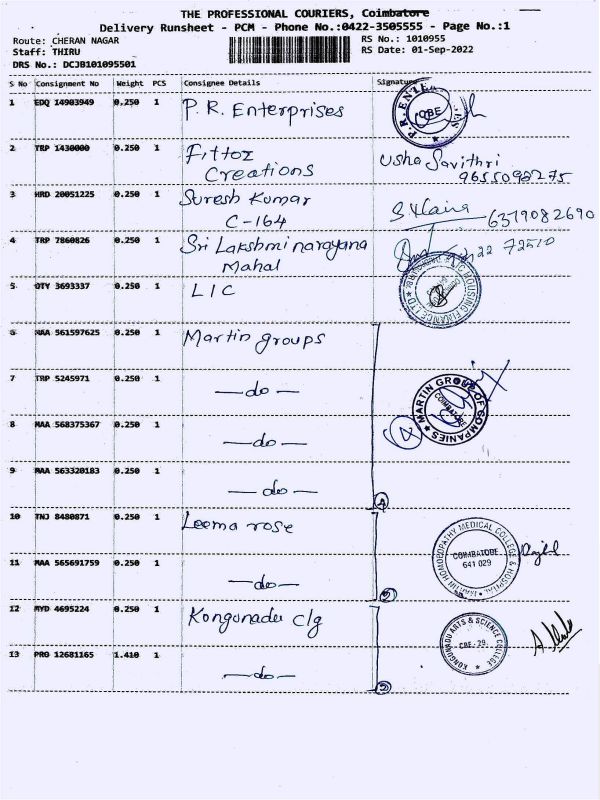 THE PROFESSIONAL COURIERS, Coimbatore
Delivery Runsheet - PCM - Phone No.:0422-3505555 - Page No.:1
Route: CHERAN NAGAR
RS No.: 1010955
Staff: THIRU
RS Date: 01-Sep-2022
DRS No.: DCJB101095501
S No Consignment No Weight PCS Consignee Details Signature
1 EDQ 14903949 0.250 1 P.R. Enterprises
P.R. ENTE
CBE
2 TRP 1430000 0.250 1 Fittoz
Creations
Usha Savithri
9655098275
3 HRD 20051225 0.250 1 Suresh Kumar
C-164
6379082690
4 TRP 7860826 0.250 1 Sri Lakshmi narayana
Mahal
72510
5 OTY 3693337 0.250 1 LIC
LIC HOUSING FINANCE LTD
6 MAA 561597625 0.250 1 Martin groups
7 TRP 5245971 0.250 1 —do—
MARTIN GROUP OF COMPANIES
COIMBATORE
4
8 MAA 568375367 0.250 1 —do—
9 MAA 563320183 0.250 1 —do—
4
10 TNJ 8480871 0.250 1 Leema rose
MARTIN HOMOEOPATHY MEDICAL COLLEGE & HOSPITAL
COIMBATORE
641 029
11 MAA 565691759 0.250 1 —do—
2
12 MYD 4695224 0.250 1 Kongunadu clg
KONGUNADU ARTS & SCIENCE COLLEGE
CBE - 29
13 PRO 12681165 1.410 1 —do—
2